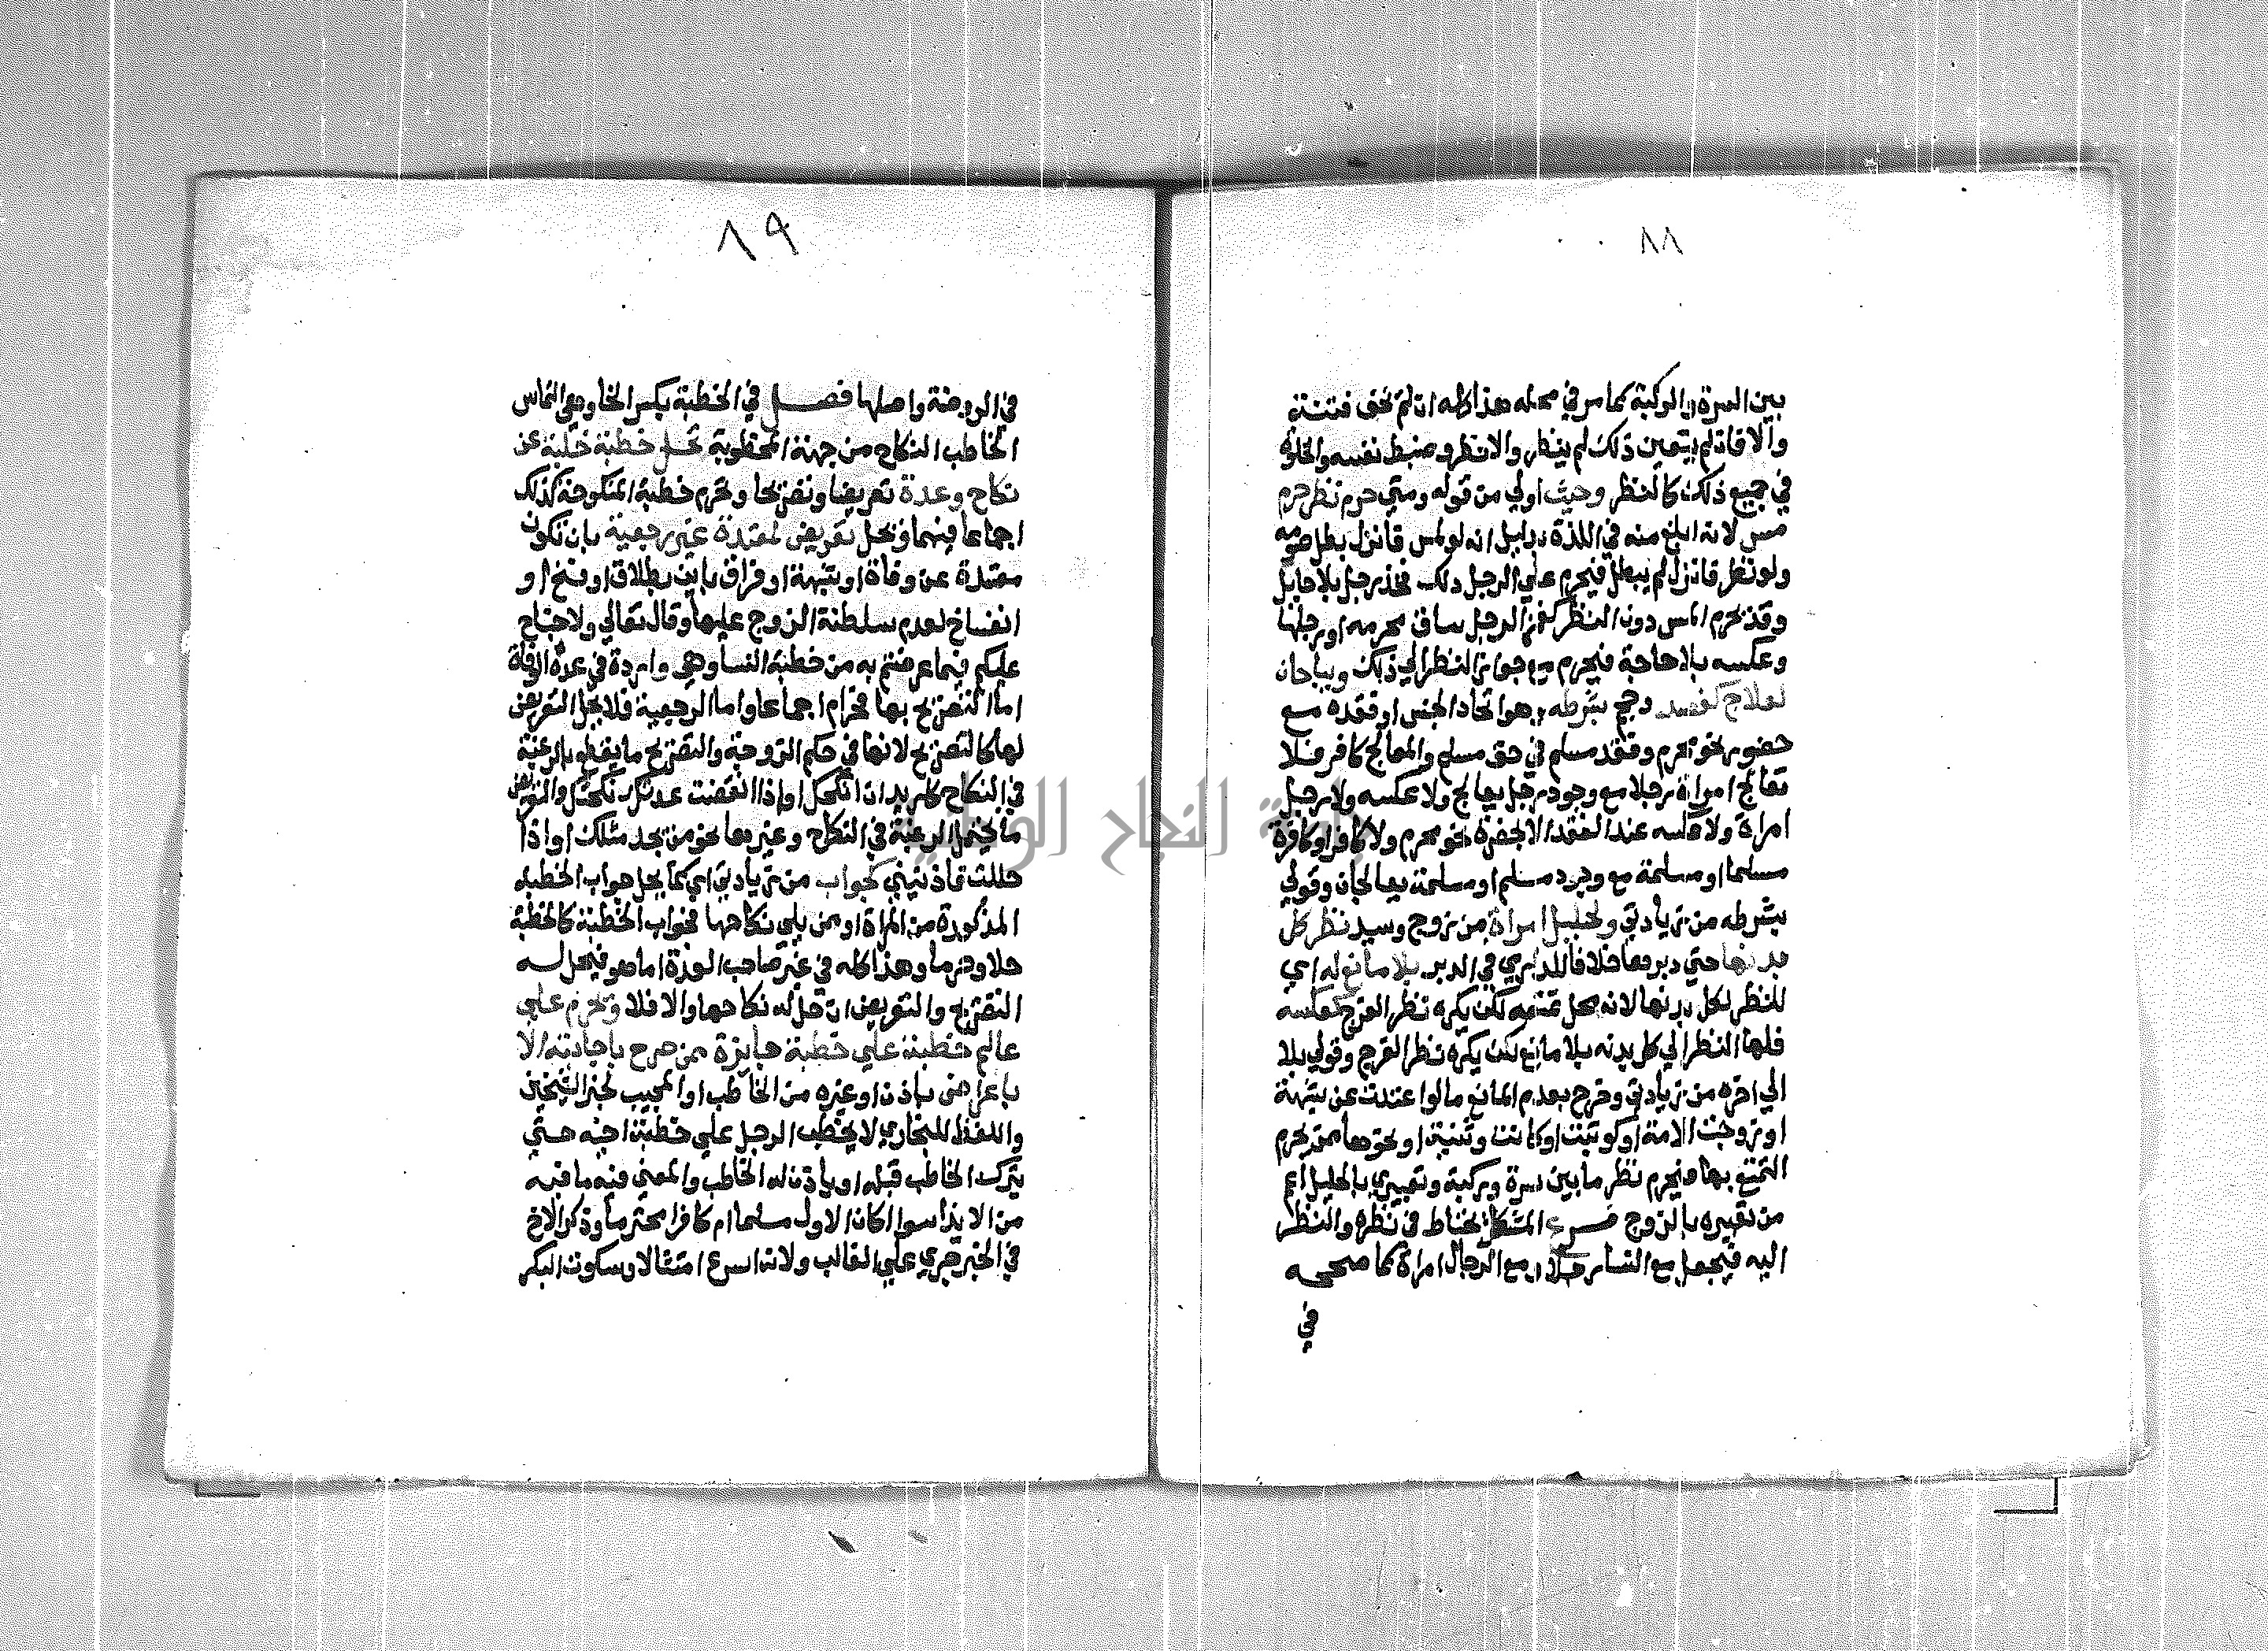 ٨٨
بين السرة والركبة كما مر في محله هذا كله ان لم تخف فتنة
والا فان لم يتعين ذلك لم ينظر والا نظر وضبط نفسه والخلوة
في جميع ذلك كالنظر وحيث اولي من قوله ومتي حرم نظر حرم
مس لانه ابلغ منه في اللذة بدليل انه لو لمس فانزل بطل صومه
ولو نظر فانزل لم يبطل فيحرم علي الرجل دلك فخذ رجل بلا حايل
وقد يحرم المس دون النظر كغمز الرجل ساق محرمه او رجلها
وعكسه بلا حاجة فيحرم مع جواز النظر الي ذلك ويباحان
لعلاج كفصد وحجم بشرطه وهو اتحاد الجنس او فقده مع
حضور نحو محرم وفقد مسلم في حق مسلم والمعالج كافر فلا
تعالج امراة رجلا مع وجود رجل يعالج ولا عكسه ولا رجل
امراة ولا عكسه عند الفقد الا بحضرة نحو محرم ولا كافر او كافرة
مسلما او مسلمة مع وجود مسلم او مسلمة يعالجان وقولي
بشرطه من زيادتي ولحليل امراة من زوج وسيد نظر كل
بدنها حتي دبرها خلافا للدارمي في الدبر بلا مانع له اي
للنظر لكل بدنها لانه محل تمتعه لكن يكره نظر الفرج كعكسه
فلها النظر الي كل بدنه بلا مانع لكن يكره نظر الفرج وقولي بلا
الي اخره من زيادتي وخرج بعدم المانع ما لو اعتدت عن شبهة
او زوجت الامة او كوتبت او كانت وثنية او نحوها ممن يحرم
التمتع بها فيحرم نظر ما بين سرة وركبة وتعبيري بالحليل اعم
من تعبيره بالزوج فسرع المشكل يحتاط في نظره والنظر
اليه فيجعل مع النسا رجلا ومع الرجال امراة كما صححه
في
٨٩
في الروضة واصلها فصل في الخطبة بكسر الخا وهي التماس
الخاطب النكاح من جهة المخطوبة تحل خطبة خلية عن
نكاح وعدة تعريضا وتصريحا وتحرم خطبة المنكوحة كذلك
اجماعا فيهما وتحل تعريض لمعتدة غير رجعية بان تكون
معتدة عن وفاة او شبهة او فراق باين بطلاق او فسخ او
انفساخ لعدم سلطنة الزوج عليها وقال تعالي ولا جناح
عليكم فيما عرضتم به من خطبة النسا وهي واردة في عدة الوفاة
اما التصريح بها فحرام اجماعا واما الرجعية فلا يحل التعريض
لها كالتصريح لانها في حكم الزوجة والتصريح ما يقطع بالرغبة
في النكاح كاريد ان انكحك او اذا انقضت عدتك نكحتك والتعريض
ما يحتمل الرغبة في النكاح وغيرها نحو من يجد مثلك او اذا
حللت فاذنيني كجواب من زيادتي اي كما يحل جواب الخطبة
المذكورة من المراة او ممن يلي نكاحها فجواب الخطبة كالخطبة
حلا وحرما وهذا كله في غير صاحب العدة اما هو فيحل له
التصريح والتعريض ان حل له نكاحها والا فلا وتحرم علي
عالم خطبة علي خطبة جايزة ممن صرح باجابته الا
باعراض باذن او غيره من الخاطب او المجيب لخبر الشيخين
واللفظ للبخاري لا يخطب الرجل علي خطبة اخيه حتي
يترك الخاطب قبله او ياذن له الخاطب والمعني فيه ما فيه
من الايذا سوا اكان الاول مسلما ام كافرا محترما وذكر الاخ
في الخبر جري علي الغالب ولانه اسرع امتثالا وسكوت البكر
جامعة النجاح الوطنية